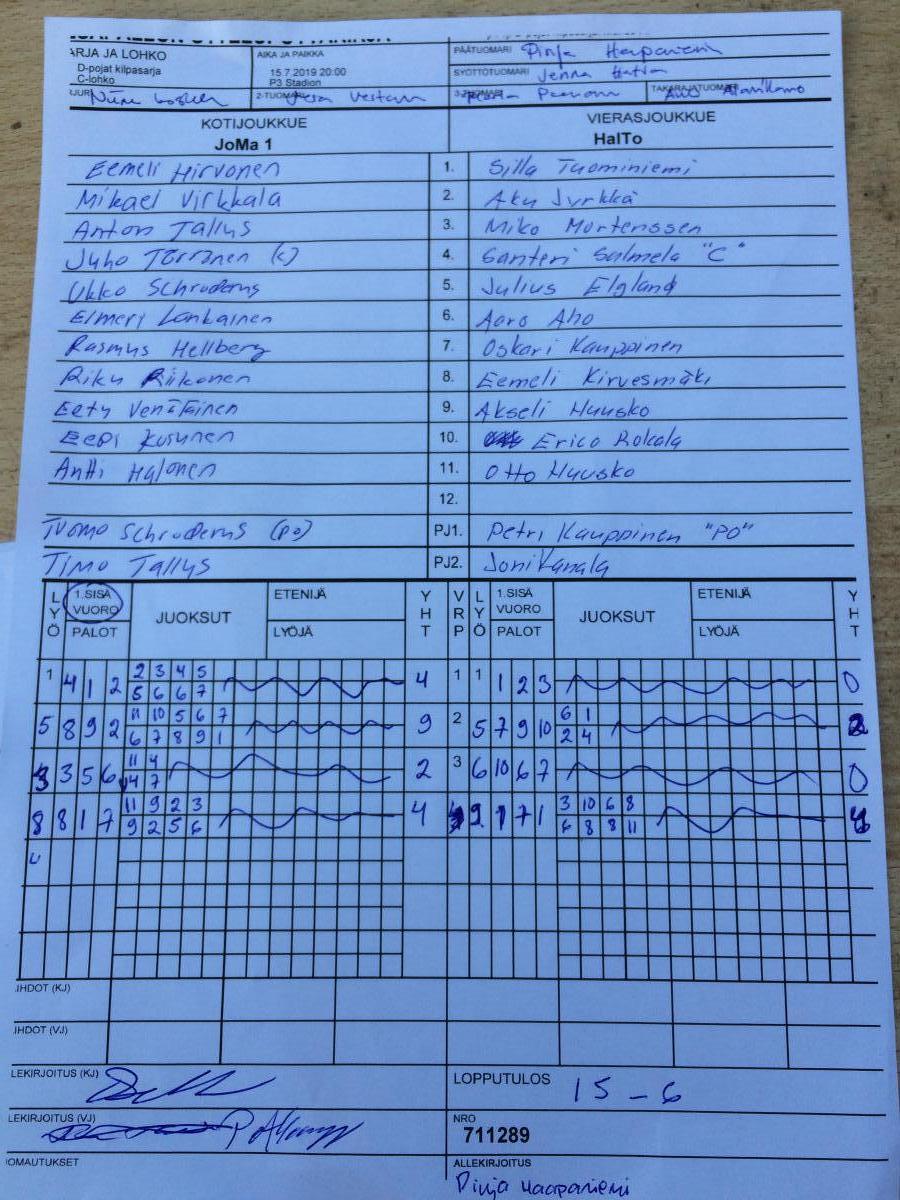 ARJA JA LOHKO
D-pojat kilpasarja
C-lohko
AIKA JA PAIKKA
15.7.2019 20:00
P3 Stadion
PÄÄTUOMARI Pinja Haapaniemi
SYÖTTÖTUOMARI Jenna
2-TUOMARI Vesa
TAKARAJATUOMARI
KOTIJOUKKUE VIERASJOUKKUE
JoMa 1 HalTo
Eemeli Hirvonen 1. Silla Tuominiemi
Mikael Virkkala 2. Aku Jyrkkä
Anton Tallus 3. Miko Mortenssen
Juho Törrönen (c) 4. Santeri Salmela "C"
Ukko Schroderus 5. Julius Elgland
Elmeri Lankainen 6. Aaro Aho
Rasmus Hellberg 7. Oskari Kauppinen
Riku Riikonen 8. Eemeli Kirvesmäki
Eetu Venäläinen 9. Akseli Huusko
Eepi Kosunen 10. Erico Rokala
Antti Halonen 11. Otto Huusko
12.
Tuomo Schroderus (po) PJ1. Petri Kauppinen "PO"
Timo Tallus PJ2. Joni Kanala
LYÖ 1.SISÄ VUORO PALOT JUOKSUT ETENIJÄ LYÖJÄ YHT VRP LYÖ 1.SISÄ VUORO PALOT JUOKSUT ETENIJÄ LYÖJÄ YHT
2 3 4 5
1 4 1 2 5 6 6 7 4 1 1 1 2 3 0
11 10 5 6 7 6 1
5 8 9 2 6 7 8 9 1 9 2 5 7 9 10 2 4 2
11 4
3 3 5 6 14 7 2 3 6 10 6 7 0
11 9 2 3 3 10 6 8
8 8 1 7 9 2 5 6 4 9 1 7 1 6 8 8 11 4
4
IHDOT (KJ)
IHDOT (VJ)
LEKIRJOITUS (KJ) LOPPUTULOS 15 - 6
LEKIRJOITUS (VJ) NRO
711289
OMAUTUKSET ALLEKIRJOITUS
Pinja Haapaniemi